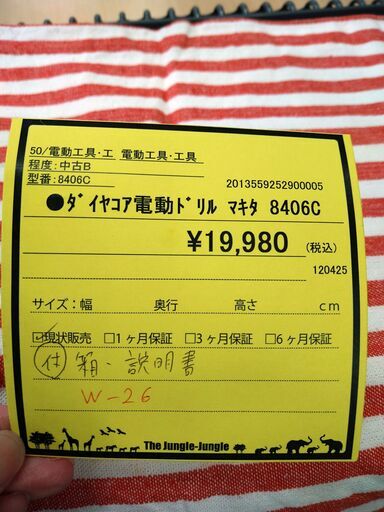 50/電動工具・工 電動工具・工具
程度:中古B
型番:8406C
2013559252900005
●ダイヤコア電動ドリル マキタ 8406C
¥19,980 (税込)
120425
サイズ:幅 奥行 高さ cm
☑現状販売 □1ヶ月保証 □3ヶ月保証 □6ヶ月保証
付 箱・説明書
W-26
The Jungle-Jungle